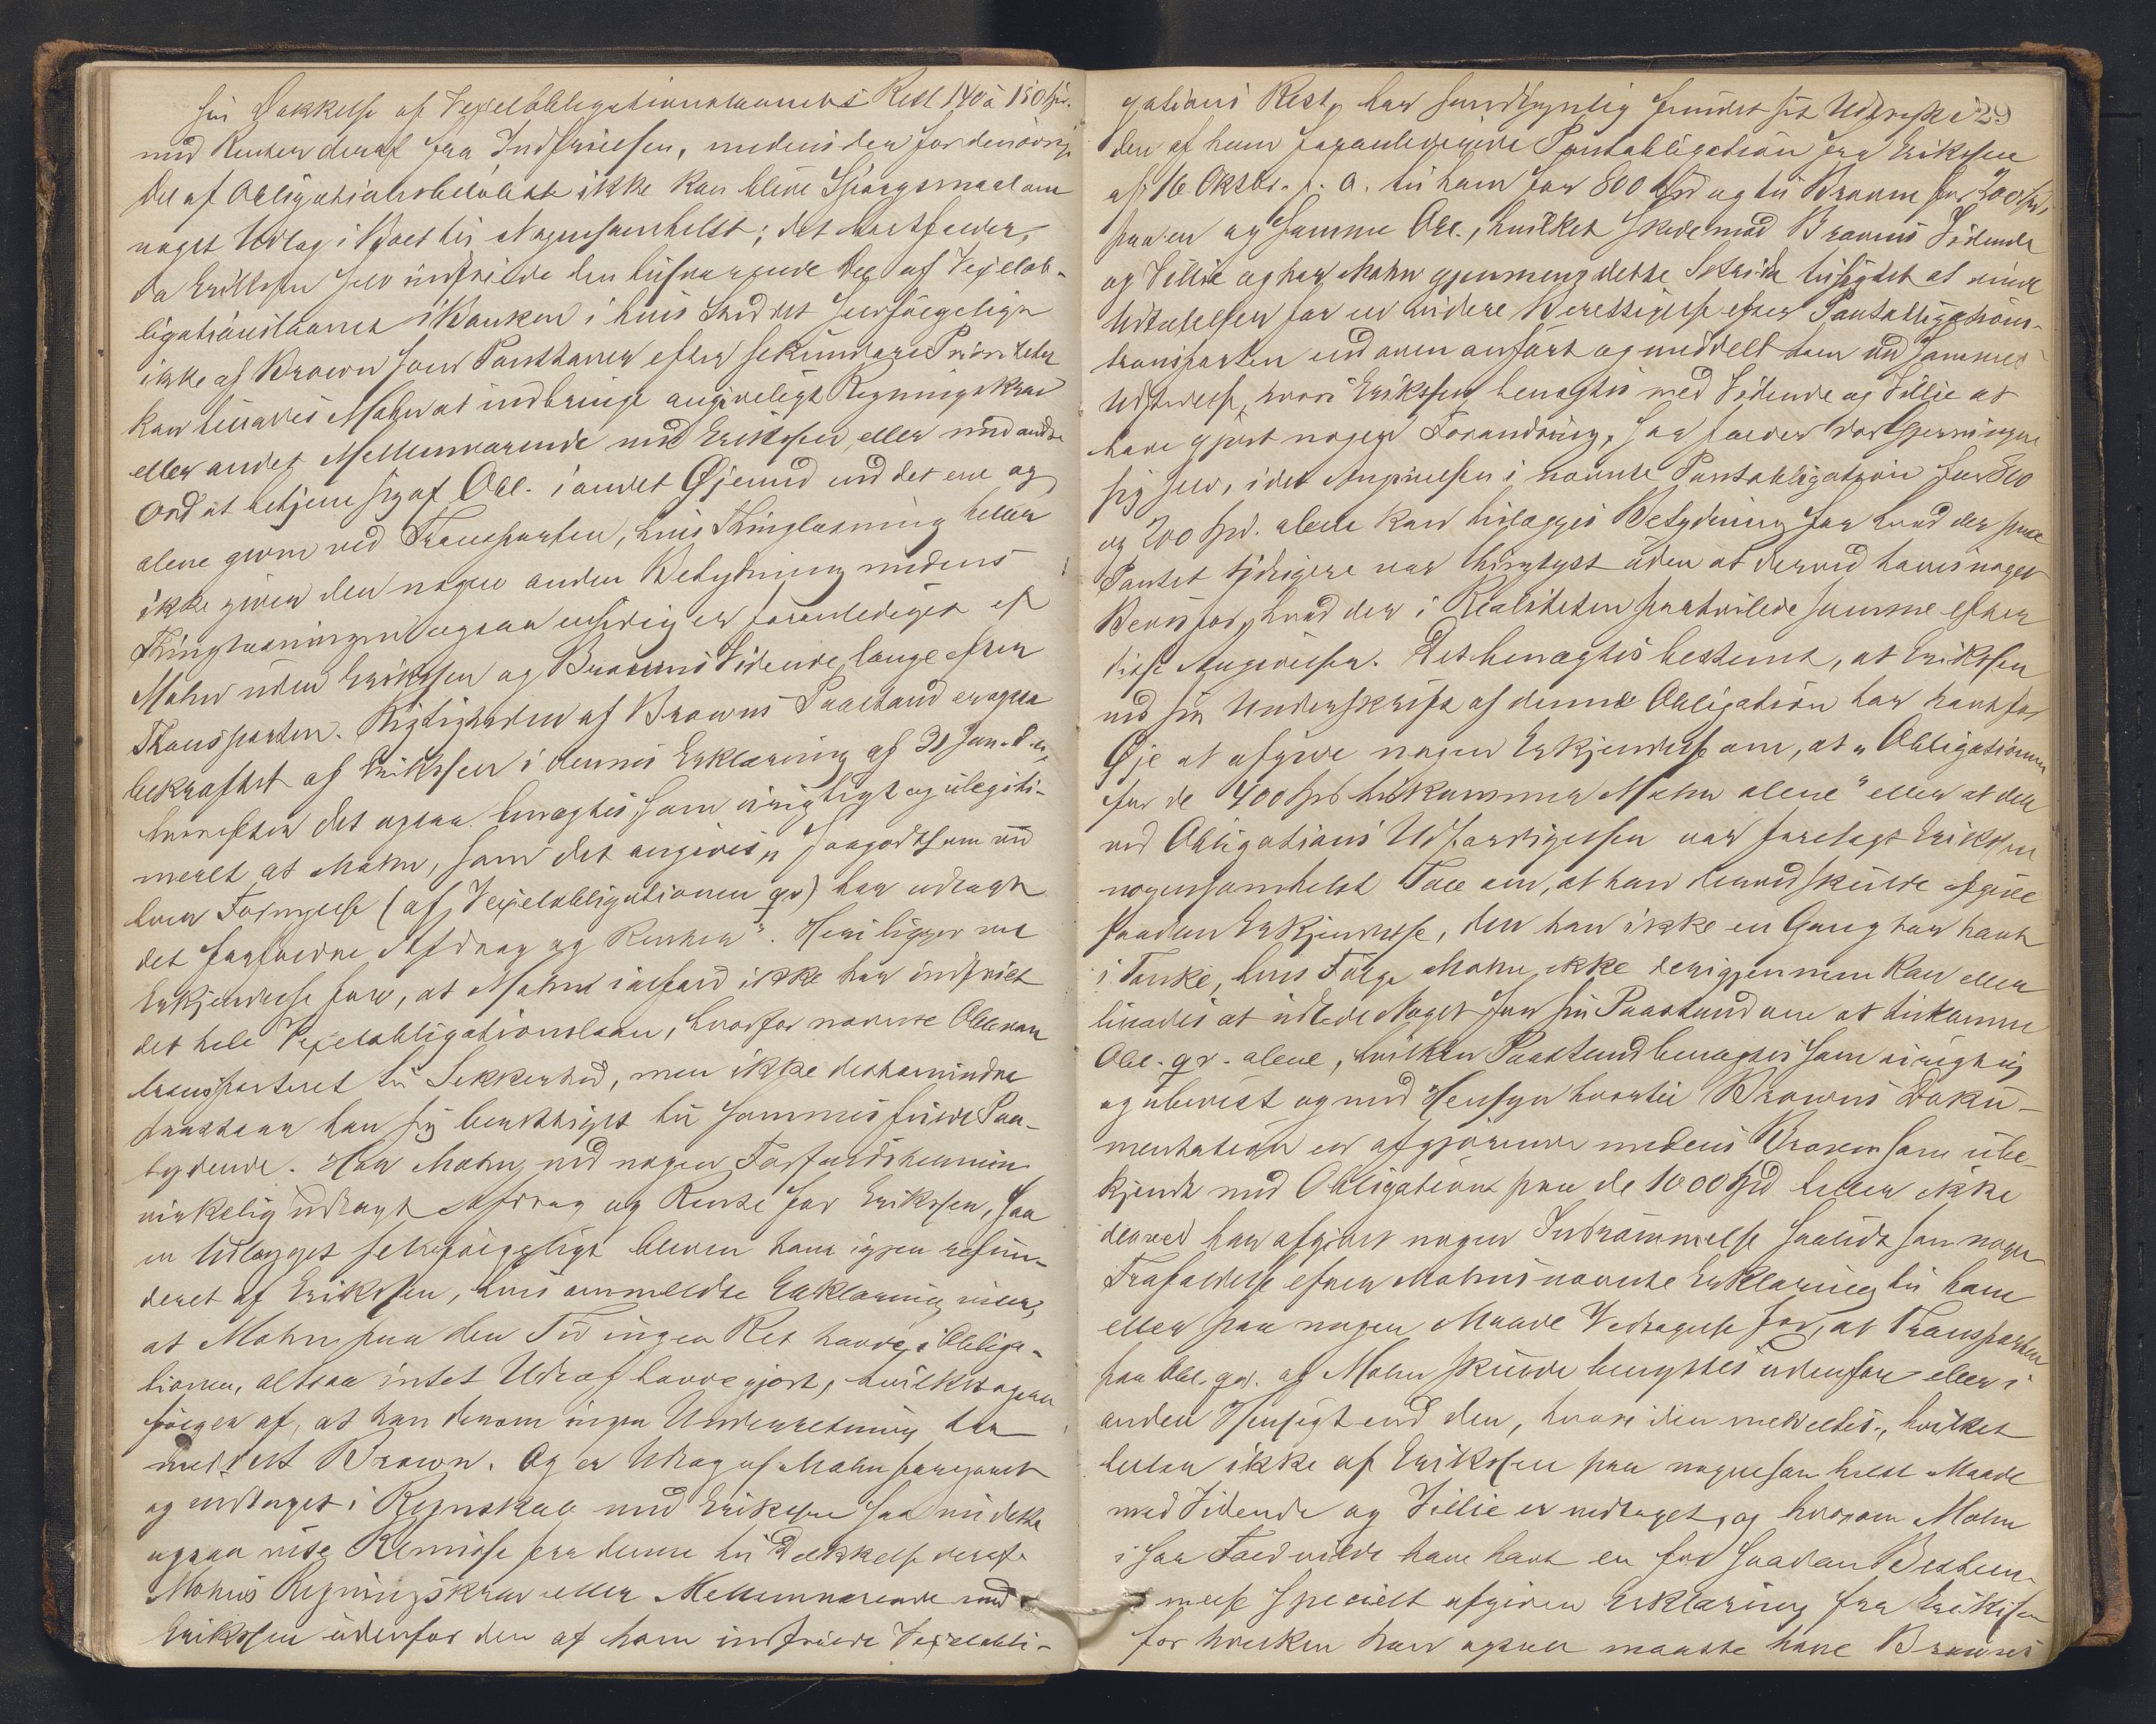 sin Dækkelse af Vexelobligationslaanets Rest 140 à 150 Spd.
med Renter deraf fra Indfrielsen, medens der for den øvrige
Del af Obligationsbeløbet ikke kan blive Spørgsmaal om
noget Udlæg i Boet til Nogensomhelst; det bortfalder,
da Eriksen selv indfriede den tilsvarende Del af Vexelob-
ligationslaanet i Banken i hvis Sted det selvfølgelig
ikke af Brown som Panthaver efter sekundære Prioriteter
kan tillades Mohn at indbringe angiveligt Regningskrav
eller andet Mellemværende med Eriksen, eller med andre
Ord at betjene sig af Obl. i andet Øjemed end det ene og
alene givne ved Transporten, hvis Thinglæsning heller
ikke giver den nogen anden Betydning medens
Thinglæsningen ogsaa ensidig er foranlediget af
Mohn uden Eriksens og Browns Vidende længe efter
Transporten. Rigtigheden af Browns Paastand er ogsaa
bekræftet af Eriksen i dennes Erklæring af 31 Jan. d. A.
hvorefter det ogsaa benægtes som urigtigt og ulegiti-
meret at Mohn, som det angives, „saagodtsom ved
hver Fornyelse (af Vexelobligationen qv.) har udlagt
det forfaldne Afdrag og Renter“. Heri ligger en
Erkjendelse for, at Mohn ialfald ikke har indfriet
det hele Vexelobligationslaan, hvorfor nævnte Obl. var
transporteret til Sikkerhed, men ikke destomindre
paastaar han sig berettiget til sammes fulde Paa-
lydende. Har Mohn ved nogen Forfaldstermin
virkelig udlagt Afdrag og Rente for Eriksen, saa
er Udlægget selvfølgeligt bleven ham igjen refun-
deret af Eriksen, hvis anmeldte Erklæring viser,
at Mohn paa den Tid ingen Ret havde i Obliga-
tionen, altsaa intet Udlæg havde gjort, hvilket ogsaa
følger af, at han derom ingen Underretning har
meddelt Brown. Og er Udlæg af Mohn foregaaet
og indtaget i Regnskab med Eriksen saa vil dette
ogsaa vise Remisse fra denne til Dækkelse deraf.
Mohns Regningskrav eller Mellemværende med
Eriksen udenfor den af ham indfriede Vexelobli-
29
gations Rest, har sandsynlig fundet sit Udtryk i
den af ham foranledigede Pantobligation fra Eriksen
af 16 Oktbr. f. A. til ham for 800 Spd og til Brown for 200 Spd,
paa en og samme Obl., hvilket skede mod Browns Vidende
og Villie og har Mohn gjennem dette Skridt tilsigtet at vinde
Udtalelsen for en videre Berettigelse efter Pantobligations-
transporten end oven anført og meddelt ham ved sammes
Udstedelse, hvori Eriksen benægtes med Vidende og Villie at
have gjort nogen Forandring, saa falder dog Gjerningen
sig selv, idet Angivelsen i nævnte Pantobligation for 800
og 200 Spd. alene kan tillægges Betydning for hvad der paa
Pantet tidligere var thinglyst uden at derved haves noget
Bevis for, hvad der i Realiteten paahvilede samme efter
disse Angivelser. Det benægtes bestemt, at Eriksen
ved sin Underskrift af denne Obligation har havt for
Øje at afgive nogen Erkjendelse om, at „Obligationen
for de 400 Spd tilkommer Mohn alene“ eller at der
ved Obligations Udfærdigelsen var forelagt Eriksen
nogensomhelst Tale om, at han derved skulde afgive
saadan Erkjendelse, den han ikke en Gang har havt
i Tanke, hvis Følge Mohn ikke derigjennem kan eller
tillades at udlede Noget for sin Paastand om at tilkomme
Obl. qv. alene, hvilken Paastand benægtes som urigtig
og ubevist og med Hensyn hvortil Browns Doku-
mentation er afgjørende medens Brown som ube-
kjendt med Obligationen paa de 1000 Spd heller ikke
derved har afgivet nogen Indrømmelse saalidt som nogen
Frafaldelse efter Mohns nævnte Erklæring til ham
eller paa nogen Maade Vedtagelse for, at Transporten
paa Obl. qv. af Mohn skulde benyttes udenfor eller i
anden Hensigt end den, hvori den meddeltes, hvilket
heller ikke af Eriksen paa nogensomhelst Maade
med Vidende og Villie er vedtaget, og hvorom Mohn
i saa Fald vilde have havt en for saadan Bestem-
melse specielt afgiven Erklæring fra Eriksen
for hvilken han ogsaa maatte have Browns